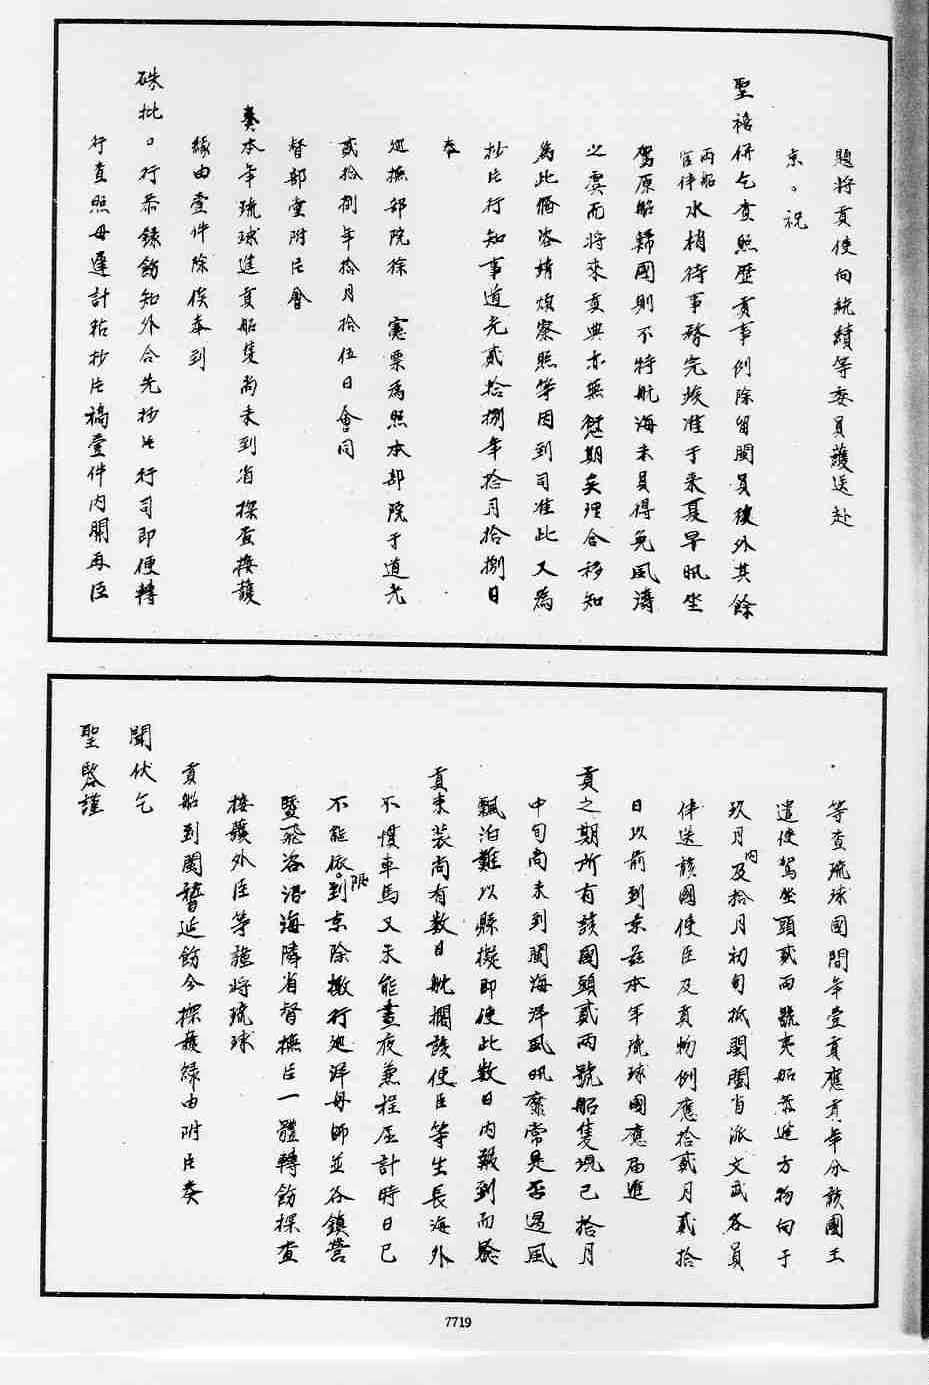 題將貢使向統績等委員護送赴
京。祝
聖禧併乞查照歷貢事例除留閩員役外其餘
兩船官伴水梢待事務完竣准于來夏早汛坐
駕原船歸國則不特航海末員得免風濤
之虞而將來貢典亦無愆期矣理合移知
為此備咨請煩察照等因到司准此又為
抄片行知事道光貳拾捌年拾月拾捌日
奉
巡撫部院徐 憲票為照本部院于道光
貳拾捌年拾月拾伍日會同
督部堂附片會
奏本年琉球進貢船隻尚未到省探查接護
緣由壹件除俟奉到
硃批。行恭錄飭知外合先抄片行司即便轉
行查照毋遲計粘抄片稿壹件內開再臣
等查琉球國間年壹貢應貢年分該國王
遣使駕坐頭貳兩號夷船恭進方物向于
玖月內及拾月初旬抵閩閩省派文武各員
伴送該國使臣及貢物例應拾貳月貳拾
日以前到京茲本年琉球國應届進
貢之期所有該國頭貳兩號船隻現已拾月
中旬尚未到閩海洋風汛靡常是否遇風
飄泊難以懸擬即使此數日內報到而驗
貢束裝尚有數日躭擱該使臣等生長海外
不慣車馬又未能晝夜兼程届計時日已
不能依限。到京除檄行巡洋舟師並各鎮營
暨飛咨沿海隣省督撫臣一體轉飭探查
接護外臣等謹將琉球
貢船到閩稽延飭令探護緣由附片奏
聞伏乞
聖鑒謹
7719